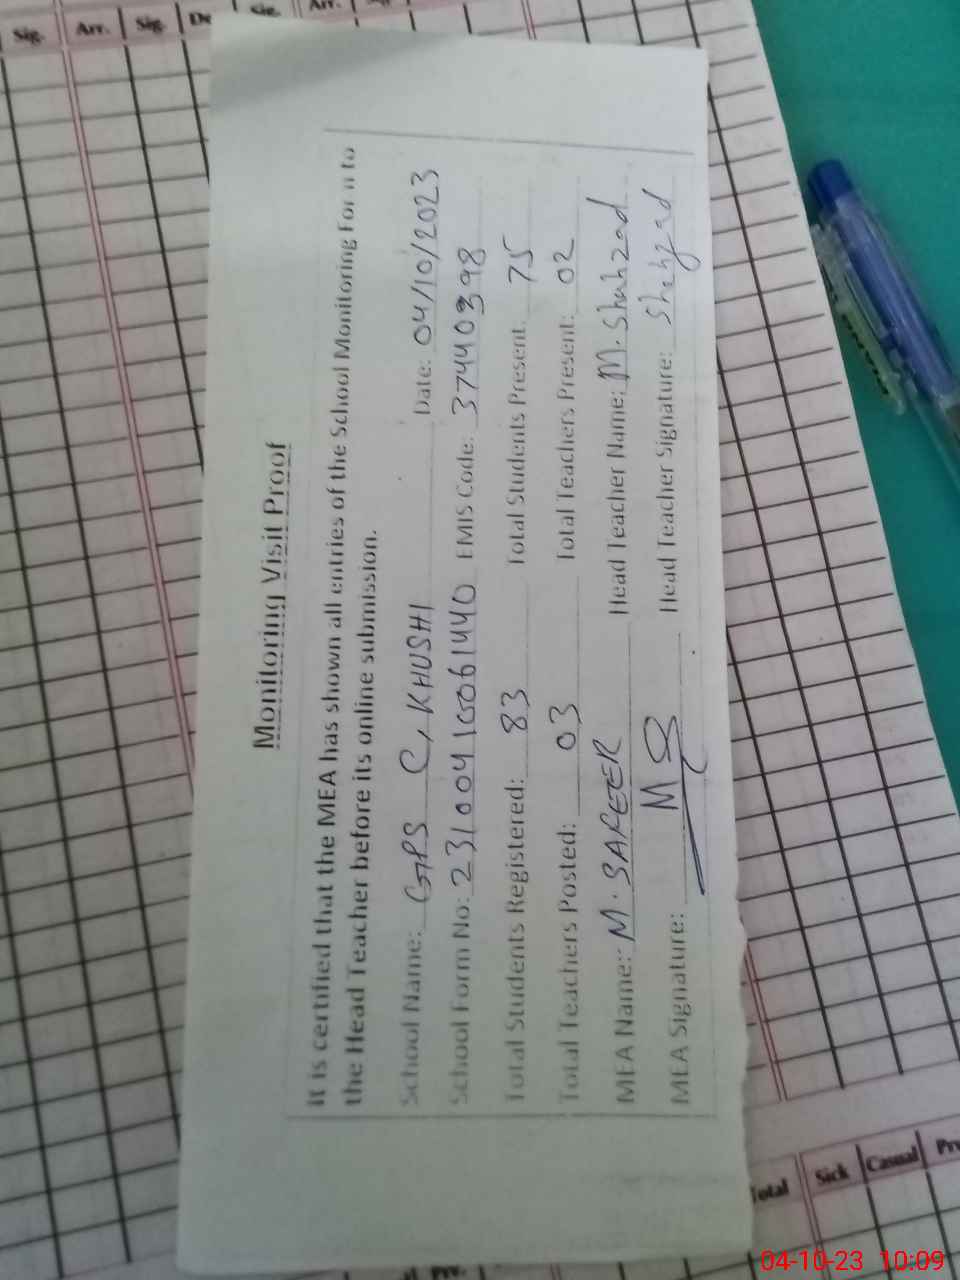 Sig. Arr. Sig. De Sig. Arr.
Monitoring Visit Proof
It is certified that the MEA has shown all entries of the School Monitoring Form to
the Head Teacher before its online submission.
School Name: GPS C, KHUSHI Date: 04/10/2023
School Form No: EMIS Code: 37440398
Total Students Registered: 83 Total Students Present. 75
Total Teachers Posted: 03 Total Teachers Present: 02
MEA Name: M. Head Teacher Name: M. Shahzad
MEA Signature: MS Head Teacher Signature: Shahzad
Total Sick Casual Prv
Prv.
04-10-23 10:09